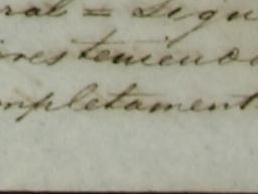 ral = Sigu
ires teniend
mpletament